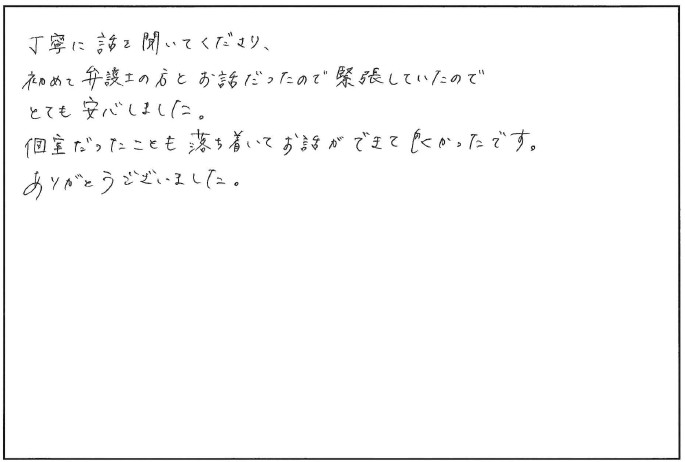 丁寧に話を聞いてくださり、
初めて弁護士の方とお話だったので緊張していたので
とても安心しました。
個室だったことも落ち着いてお話ができて良かったです。
ありがとうございました。